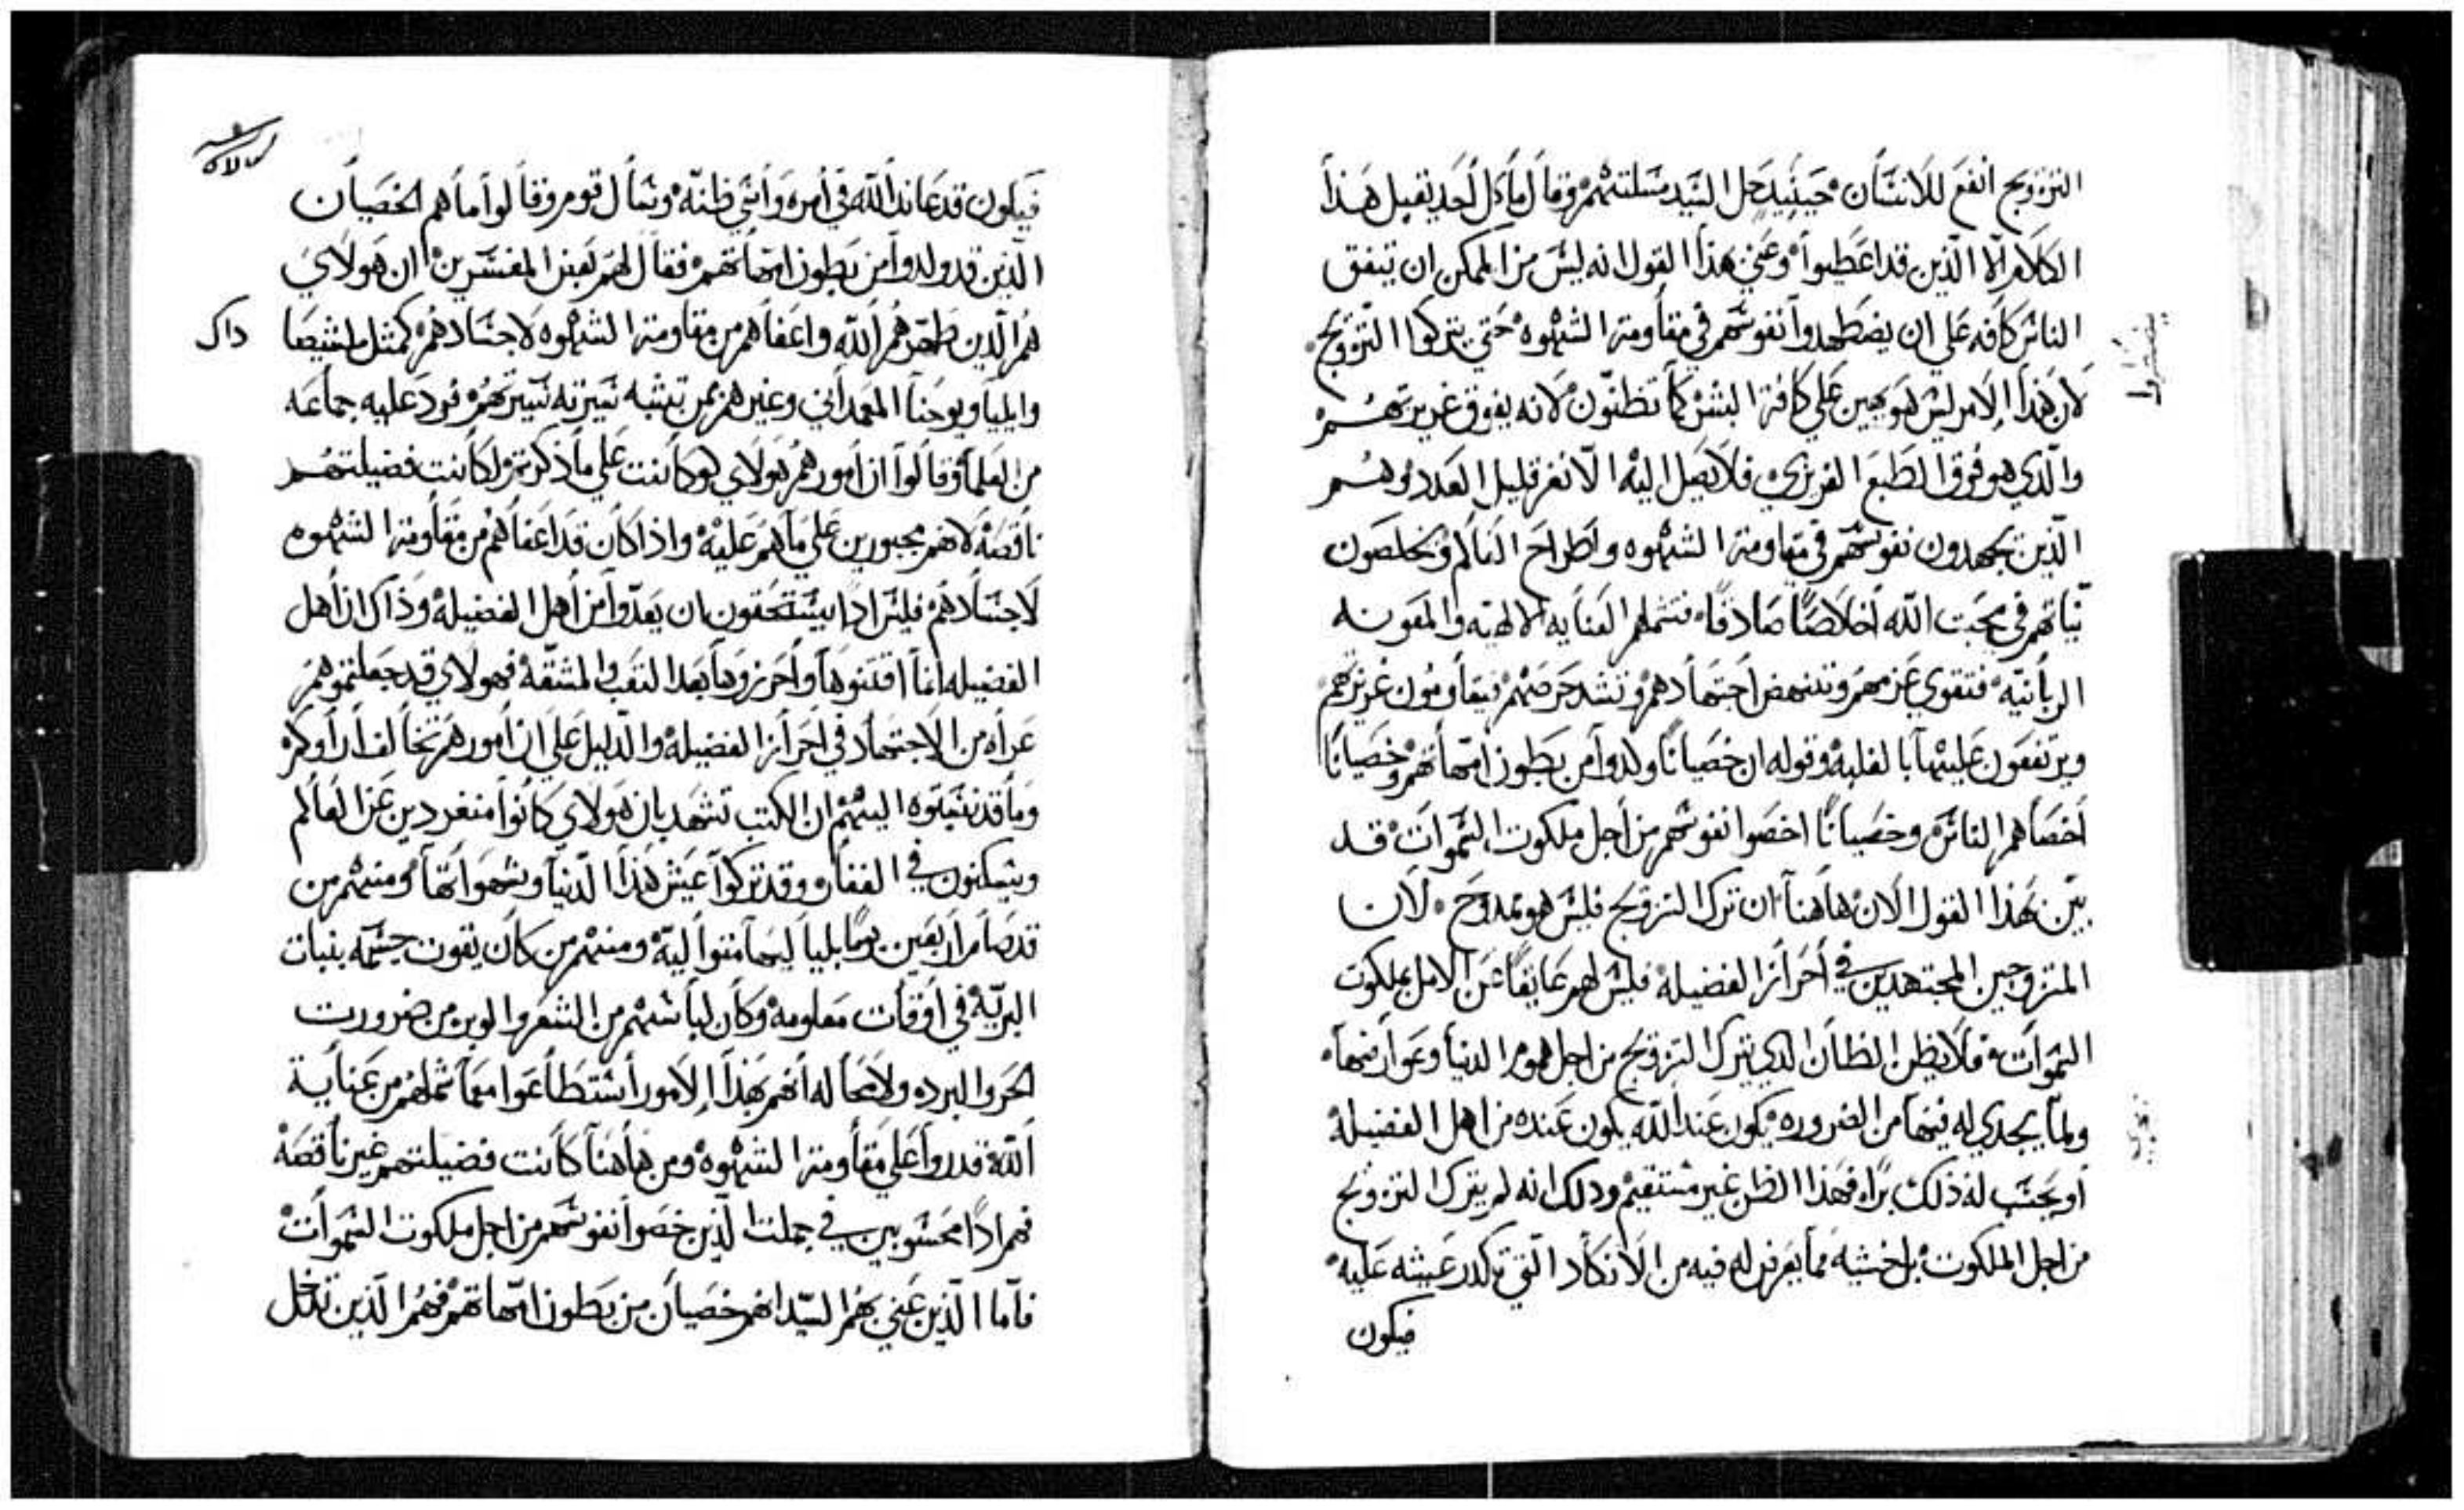 التزويج انفع للانسان حينيد حل السيد مسلتهم وقال ما كل احد يقبل هذا
الكلام الا الذين قد اعطيوا وعني هذا القول انه ليس من الممكن ان تتفق
الناس كافه علي ان يضطهدوا نفوسهم في مقاومة الشهوه حتي يتركوا التزويج
لان هذا الامر ليس هو بهين علي كافة البشر كما تظنون لانه يفوق غريزتهم
والدي هو فوق الطبع الغريزي فلا يصل اليه الا نفر قليل العدد وهم
الذين يجهدون نفوسهم في مقاومة الشهوه واطراح العالم ويخلصون
نياتهم في محبت الله اخلاصا صادقا فتشملهم العنايه الالهيه والمعونه
الربانيه فتقوي عزمهم وتنهض اجتهادهم وتشد حرصهم فيقاومون غريزتهم
ويرتفعون عليها بالغلبه وقوله ان خصيانا ولدوا من بطون امهاتهم وخصيانا
اخصاهم الناس وخصيانا اخصوا نفوسهم من اجل ملكوت السموات قد
بين بهذا القول الان هاهنا ان ترك التزويج فليس هو بمدوح لان
المتزوجين المجتهدين في احراز الفضيله فليس لهم عايقا عن الامل بملكوت
السموات فلا يظن الظان الدي يترك التزويج من اجل هموم الدنيا وعوارضها
ولما يجدي له فيها من الضروره يكون عند الله يكون عنده من اهل الفضيله
او يحسب له ذلك برا فهذا الظن غير مستقيم ودلك انه لم يترك التزويج
من اجل الملكوت بل خشيه مما يعرض له فيه من الانكاد التي تكدر عيشه عليه
فيكون
فيكون قد عاند الله في امره واشي ظنه وسال قوم وقالوا ما هم الخصيان
الذين قد ولدوا من بطون امهاتهم فقال لهم بعض المفسرين ان هولاي
هم الدين طهرهم الله واعفاهم من مقاومة الشهوه لاجسادهم كمثل ليشيصا
داك
وايليا ويوحنا المعمداني وغيرهم بمن تشبه سيرته سيرتهم فرد عليه جماعه
من العلما وقالوا ان امورهم هولاي لو كانت علي ما ذكرتم لكانت فضيلتهم
ناقصه لانهم مجبورين علي ما هم عليه واذا كان قد اعفاهم من مقاومة الشهوه
لاجسادهم فليس ادا يستحقون ان يعدوا من اهل الفضيله وذاك ان اهل
الفضيله انما اقتنوها واحرزوها بعد التعب والمشقه فهولاي قد جعلتموهم
عراه من الاجتهاد في احراز الفضيله والدليل علي ان امورهم تخالف اراوكم
وما قد نسبتوه اليهم ان الكتب تشهد بان هولاي كانوا منفردين عن العالم
ويسكنون في القفاره وقد تركوا عيش هذا الدنيا وشهواتها ومنهم من
قد صام اربعين يوما بلياليها متواليه ومنهم من كان يقوت جسمه بنبات
البريه في اوقات معلومه وكان لباسهم من الشعر والوبر من ضرورت
الحر والبرده ولا محاله انهم بهذا الامور استطاعوا مما شملهم من عناية
الله قدروا علي مقاومة الشهوه ومن هاهنا كانت فضيلتهم غير ناقصه
فهم ادا محسوبين في جملت الذين خصوا نفوسهم من اجل ملكوت السموات
فاما الذين عني بهم السيد انهم خصيان من بطون امهاتهم فهم الذين تدخل